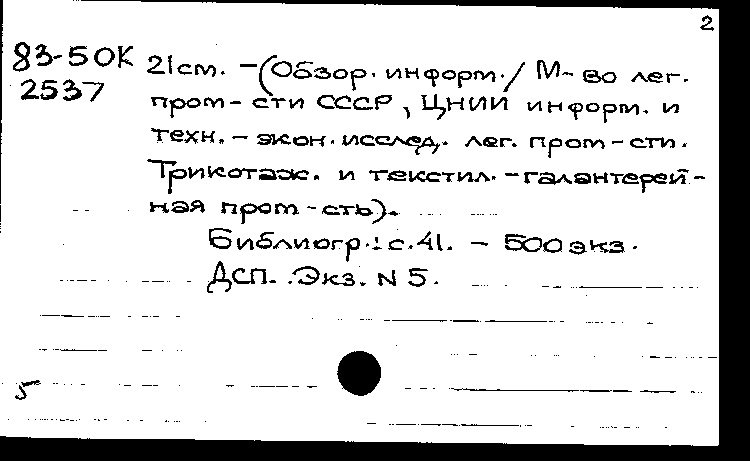 2
83-5 ОК
2537
21 cm. - (Обзор. информ. / М-во лег.
пром-сти СССР, ЦНИИ информ. и
техн.-экон. исслед. лег. пром-сти.
Трикотаж. и текстил.-галантерей-
ная пром-сть).
Библиогр.: с. 41. - 500 экз.
ДСП. Экз. N 5.
5